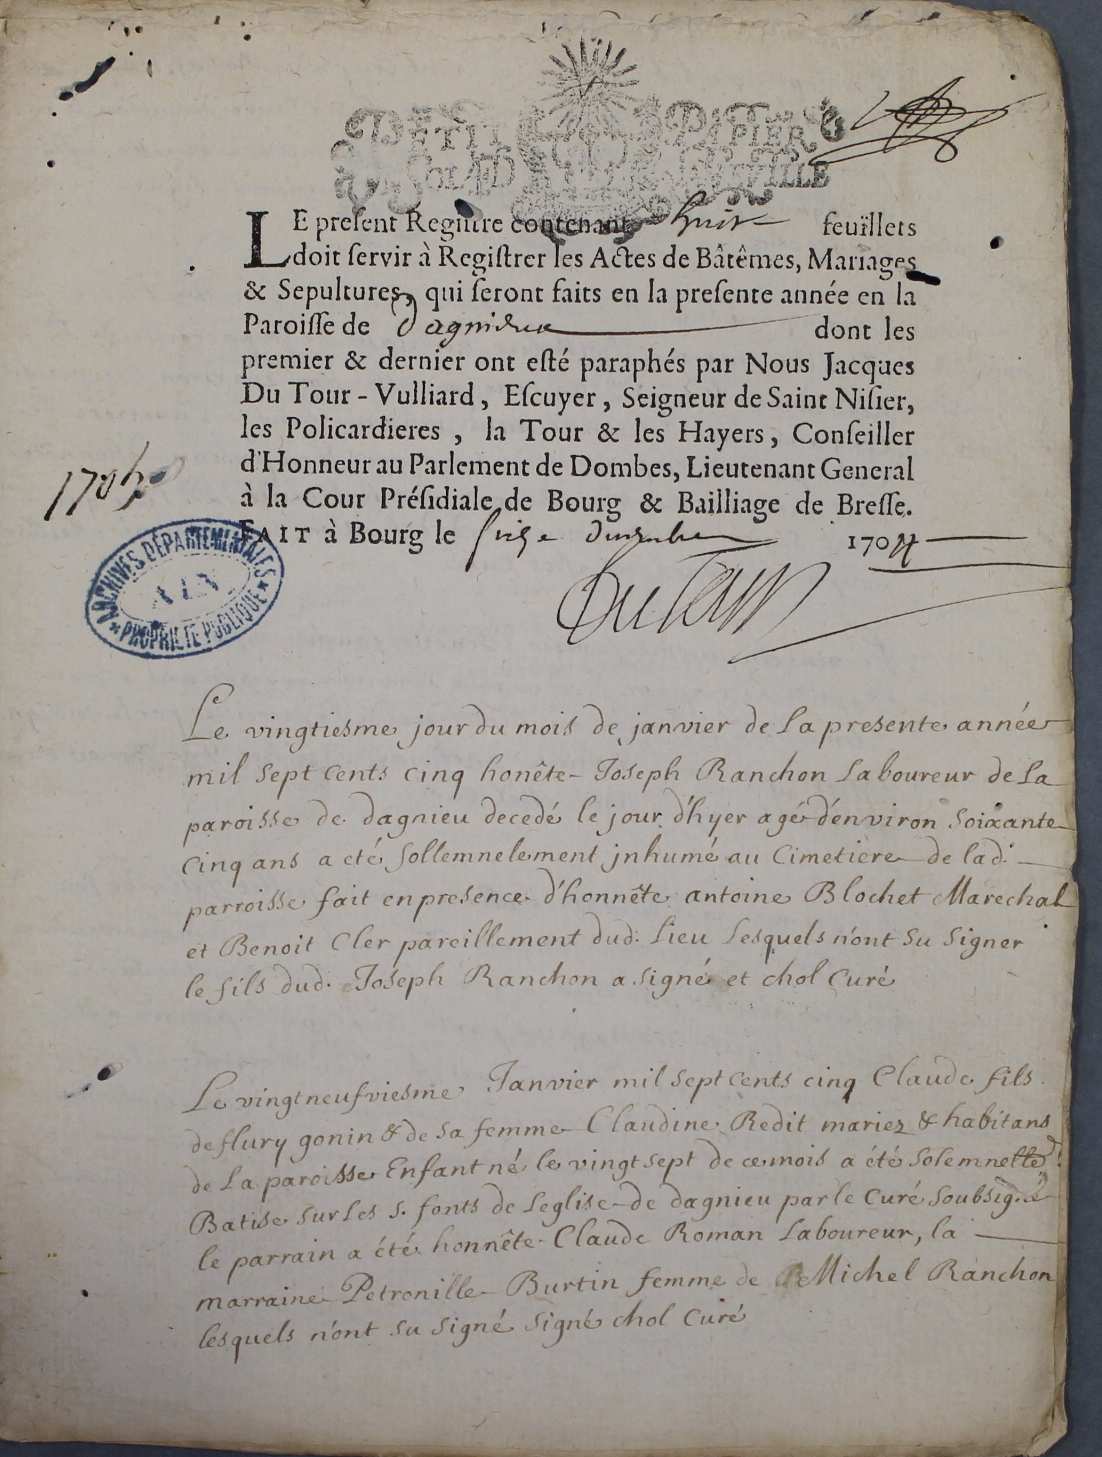 PETIT PAPIER
LE present Registre contenant huit feüillets
doit servir à Registrer les Actes de Bâtêmes, Mariages
& Sepultures, qui seront faits en la presente année en la
Paroisse de dagnieu dont les
premier & dernier ont esté paraphés par Nous Jacques
Du Tour - Vulliard, Escuyer, Seigneur de Saint Nisier,
les Policardieres, la Tour & les Hayers, Conseiller
d'Honneur au Parlement de Dombes, Lieutenant General
à la Cour Présidiale de Bourg & Bailliage de Bresse.
FAIT à Bourg le 1704
1705
ARCHIVES DÉPARTEMENTALES
AIN
PROPRIÉTÉ PUBLIQUE
DuTour
Le vingtiesme jour du mois de janvier de La presente année
mil sept cents cinq honête Joseph Ranchon Laboureur de La
paroisse de dagnieu decedé le jour d'hyer agé d'environ soixante
cinq ans a eté sollemnelement jnhumé au Cimetiere de lad.
parroisse fait en presence d'honnête antoine Blochet Marechal
et Benoit Cler pareillement dud. Lieu Lesquels n'ont su signer
le fils dud. Joseph Ranchon a signé et chol Curé
Le vingtneufviesme Janvier mil sept cents cinq Claude fils
de flury gonin & de sa femme Claudine Redit mariez & habitans
de La paroisse Enfant né le vingt sept de ce mois a été solemnellt
Batise sur Les s. fonts de Leglise de dagnieu par le Curé soubsigné
le parrain a été honnête Claude Roman Laboureur, la
marraine Petronille Burtin femme de Michel Ranchon
lesquels n'ont su signé signé chol Curé